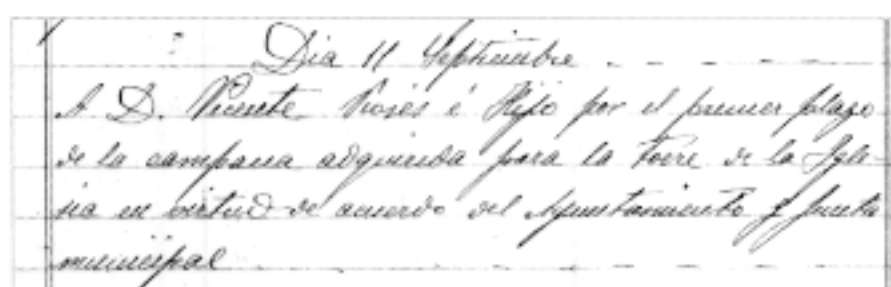 Dia 11 Septiembre
A D. Vicente Roses é Hijo por el primer plazo
de la campana adquirida para la torre de la Igle-
sia en virtud de acuerdo del Ayuntamiento y Junta
municipal